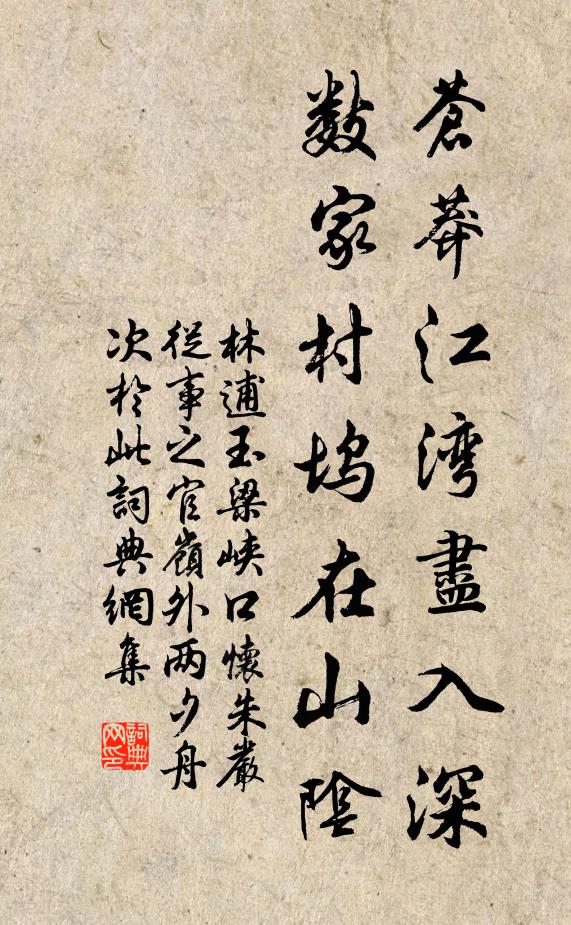 蒼莽江湾盡入深
数家村坞在山陰
林逋玉梁峡口懷朱嚴
從事之官嶺外两夕舟
次於此詞典網集
詞典网印